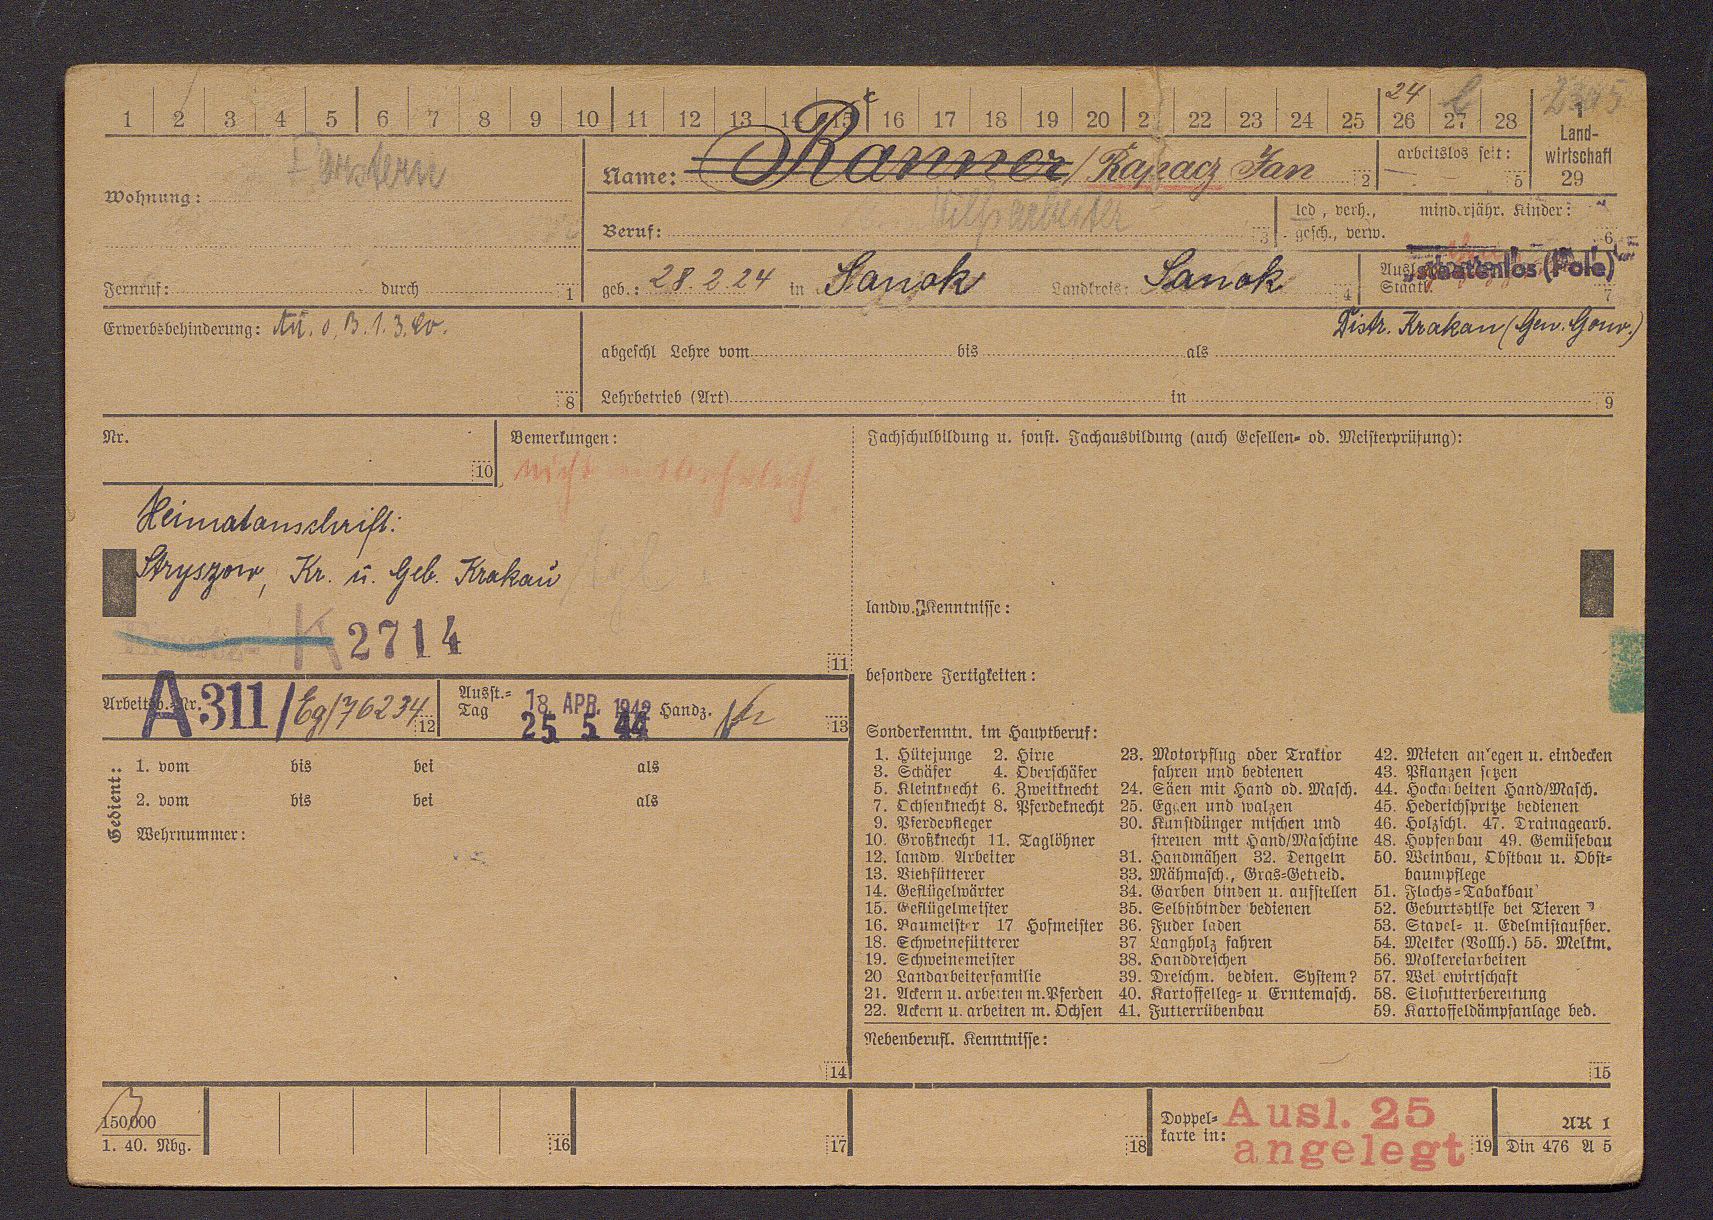 1 2 3 4 5 6 7 8 9 10 11 12 13 14 15 16 17 18 19 20 21 22 23 24 25 26 27 28
24
1
Land-
wirtschaft
29
Wohnung:
Forstern
Name: Ranner / Rapacz Jan 2
arbeitslos seit:
5
Beruf: Hilfsarbeiter 3
led., verh., gesch., verw.
minderjähr. Kinder:
6
Fernruf: durch 1
geb.: 28.2.24 in Sanok Landkreis: Sanok 4
Ausl.
Staatl.
"staatenlos (Pole)"
7
Distr. Krakau (Gen. Gouv.)
Erwerbsbehinderung:
8
abgeschl Lehre vom bis als
Lehrbetrieb (Art) in 9
Nr. 10
Bemerkungen:
nicht
Heimatanschrift:
Stryszow, Kr. u. Geb. Krakau
K 2714
11
Arbeitsb.-Nr. A 311/Eg/76234 12
Ausst.-Tag 18. APR. 1942
25 5 44
Handz. 13
Gedient:
1. vom bis bei als
2. vom bis bei als
Wehrnummer:
14
Fachschulbildung u. sonst. Fachausbildung (auch Gesellen- od. Meisterprüfung):
landw. Kenntnisse:
besondere Fertigkeiten:
Sonderkenntn. im Hauptberuf:
1. Hütejunge 2. Hirte
3. Schäfer 4. Oberschäfer
5. Kleinknecht 6. Zweitknecht
7. Ochsenknecht 8. Pferdeknecht
9. Pferdepfleger
10. Großknecht 11. Taglöhner
12. landw. Arbeiter
13. Viehfütterer
14. Geflügelwärter
15. Geflügelmeister
16. Baumeister 17 Hofmeister
18. Schweinefütterer
19. Schweinemeister
20 Landarbeiterfamilie
21. Ackern u. arbeiten m. Pferden
22. Ackern u. arbeiten m. Ochsen
23. Motorpflug oder Traktor
fahren und bedienen
24. Säen mit Hand od. Masch.
25. Eggen und walzen
30. Kunstdünger mischen und
streuen mit Hand/Maschine
31. Handmähen 32. Dengeln
33. Mähmasch., Gras-Getreid.
34. Garben binden u. aufstellen
35. Selbstbinder bedienen
36. Fuder laden
37 Langholz fahren
38. Handdreschen
39. Dreschm. bedien. System?
40. Kartoffelleg- u Erntemasch.
41. Futterrübenbau
42. Mieten anlegen u. eindecken
43. Pflanzen setzen
44. Hackarbeiten Hand/Masch.
45. Hederichspritze bedienen
46. Holzschl. 47. Drainagearb.
48. Hopfenbau 49. Gemüsebau
50. Weinbau, Obstbau u. Obst-
baumpflege
51. Flachs-Tabakbau
52. Geburtshilfe bei Tieren ?
53. Stapel- u. Edelmistaufber.
54. Melker (Vollh.) 55. Melkm.
56. Molkereiarbeiten
57. Weidewirtschaft
58. Silofutterbereitung
59. Kartoffeldämpfanlage bed.
Nebenberufl. Kenntnisse:
15
150,000
1. 40. Nbg.
16
17
18
Doppel-
karte in:
Ausl. 25
angelegt
19
AK 1
Din 476 A 5